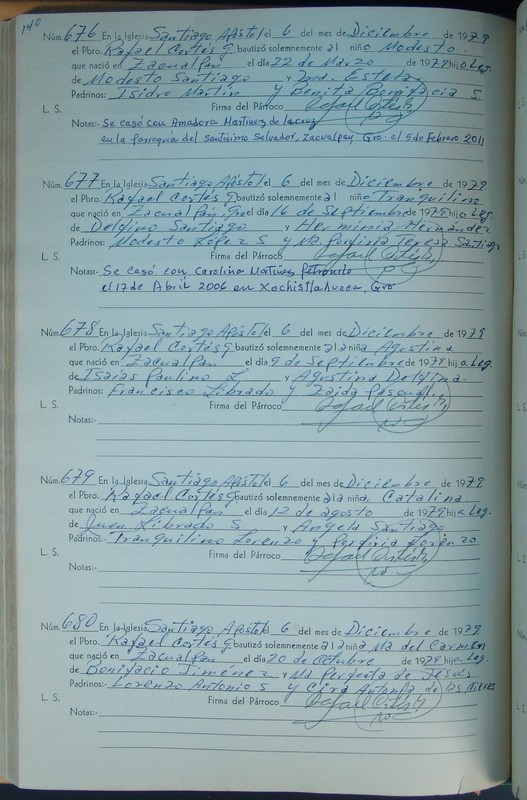 140
Núm. 676 En la Iglesia Santiago Apóstol el 6 del mes de Diciembre de 1979
el Pbro. Rafael Cortés G bautizó solemnemente al niño Modesto
que nació en Zacualpan el día 22 de Marzo de 1979 hijo Leg.
de Modesto Santiago y Estela
Padrinos: Isidro Martín y Benita Bonifacia S.
L. S. Firma del Párroco
Notas:- Se casó con Amadora Martínez de la cruz
en la parroquia del santísimo Salvador, Zacualpan, Gro. el 5 de Febrero 2011
Núm. 677 En la Iglesia Santiago Apóstol el 6 del mes de Diciembre de 1979
el Pbro. Rafael Cortés G bautizó solemnemente al niño Tranquilino
que nació en Zacualpan, Gro el día 16 de Septiembre de 1979 hijo Leg.
de Delfino Santiago y Herminia Hernández
Padrinos: Modesto López S y Ma. Porfiria Teresa Santiago
L. S. Firma del Párroco
Notas:- Se casó con Carolina Martínez Petronilo
el 17 de Abril 2006 en Xochistlahuaca, Gro
Núm. 678 En la Iglesia Santiago Apóstol el 6 del mes de Diciembre de 1979
el Pbro. Rafael Cortés G bautizó solemnemente a la niña Agostina
que nació en Zacualpan el día 9 de Septiembre de 1979 hija Leg.
de Isaías Paulino L y Agustina Delfina
Padrinos: Francisco Librado y Zaida Pascual
L. S. Firma del Párroco
Notas:-
Núm. 679 En la Iglesia Santiago Apóstol el 6 del mes de Diciembre de 1979
el Pbro. Rafael Cortés G bautizó solemnemente a la niña Catalina
que nació en Zacualpan el día 12 de agosto de 1979 hija Leg.
de Juan Librado S y Angela Santiago
Padrinos:- Tranquilino Lorenzo y Porfiria Lorenzo
L. S. Firma del Párroco
Notas:-
Núm. 680 En la Iglesia Santiago Apóstol el 6 del mes de Diciembre de 1979
el Pbro. Rafael Cortés G bautizó solemnemente a la niña Ma del Carmen
que nació en Zacualpan el día 20 de Octubre de 1979 hija Leg.
de Bonifacio Jiménez y Ma Perfecta de Jesús
Padrinos:- Lorenzo Antonio S y Cira Antonia de las Nieves
L. S. Firma del Párroco
Notas:-